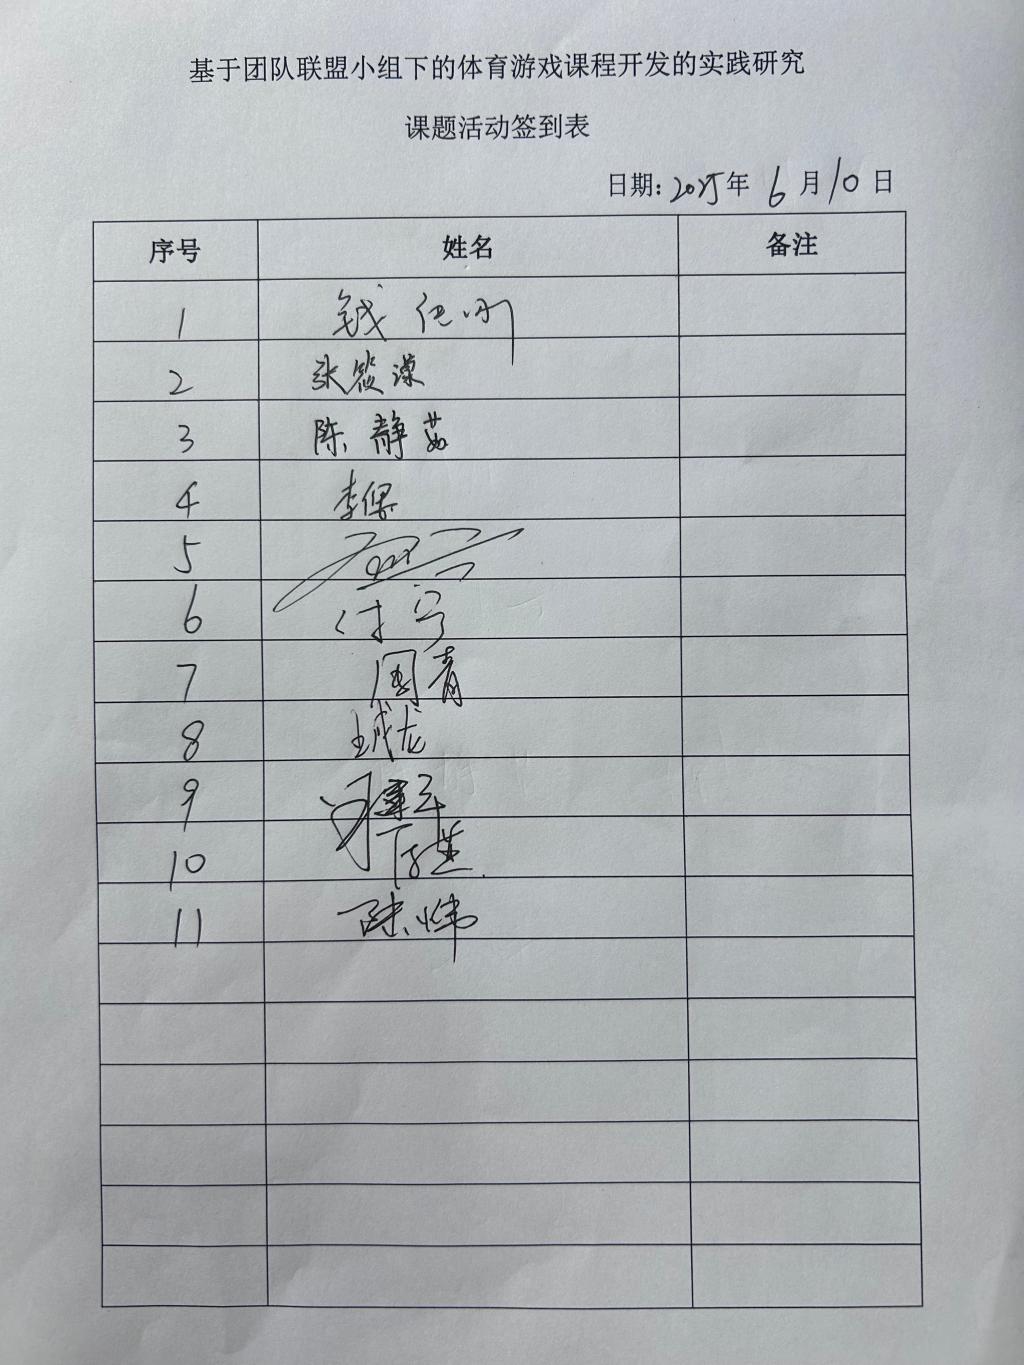 基于团队联盟小组下的体育游戏课程开发的实践研究
课题活动签到表
日期: 2025年 6月10日
序号 姓名 备注
1 钱
2 张筱
3 陈静茹
4 李保
5
6 付宁
7 周青
8 王成龙
9
10
11 陆炜